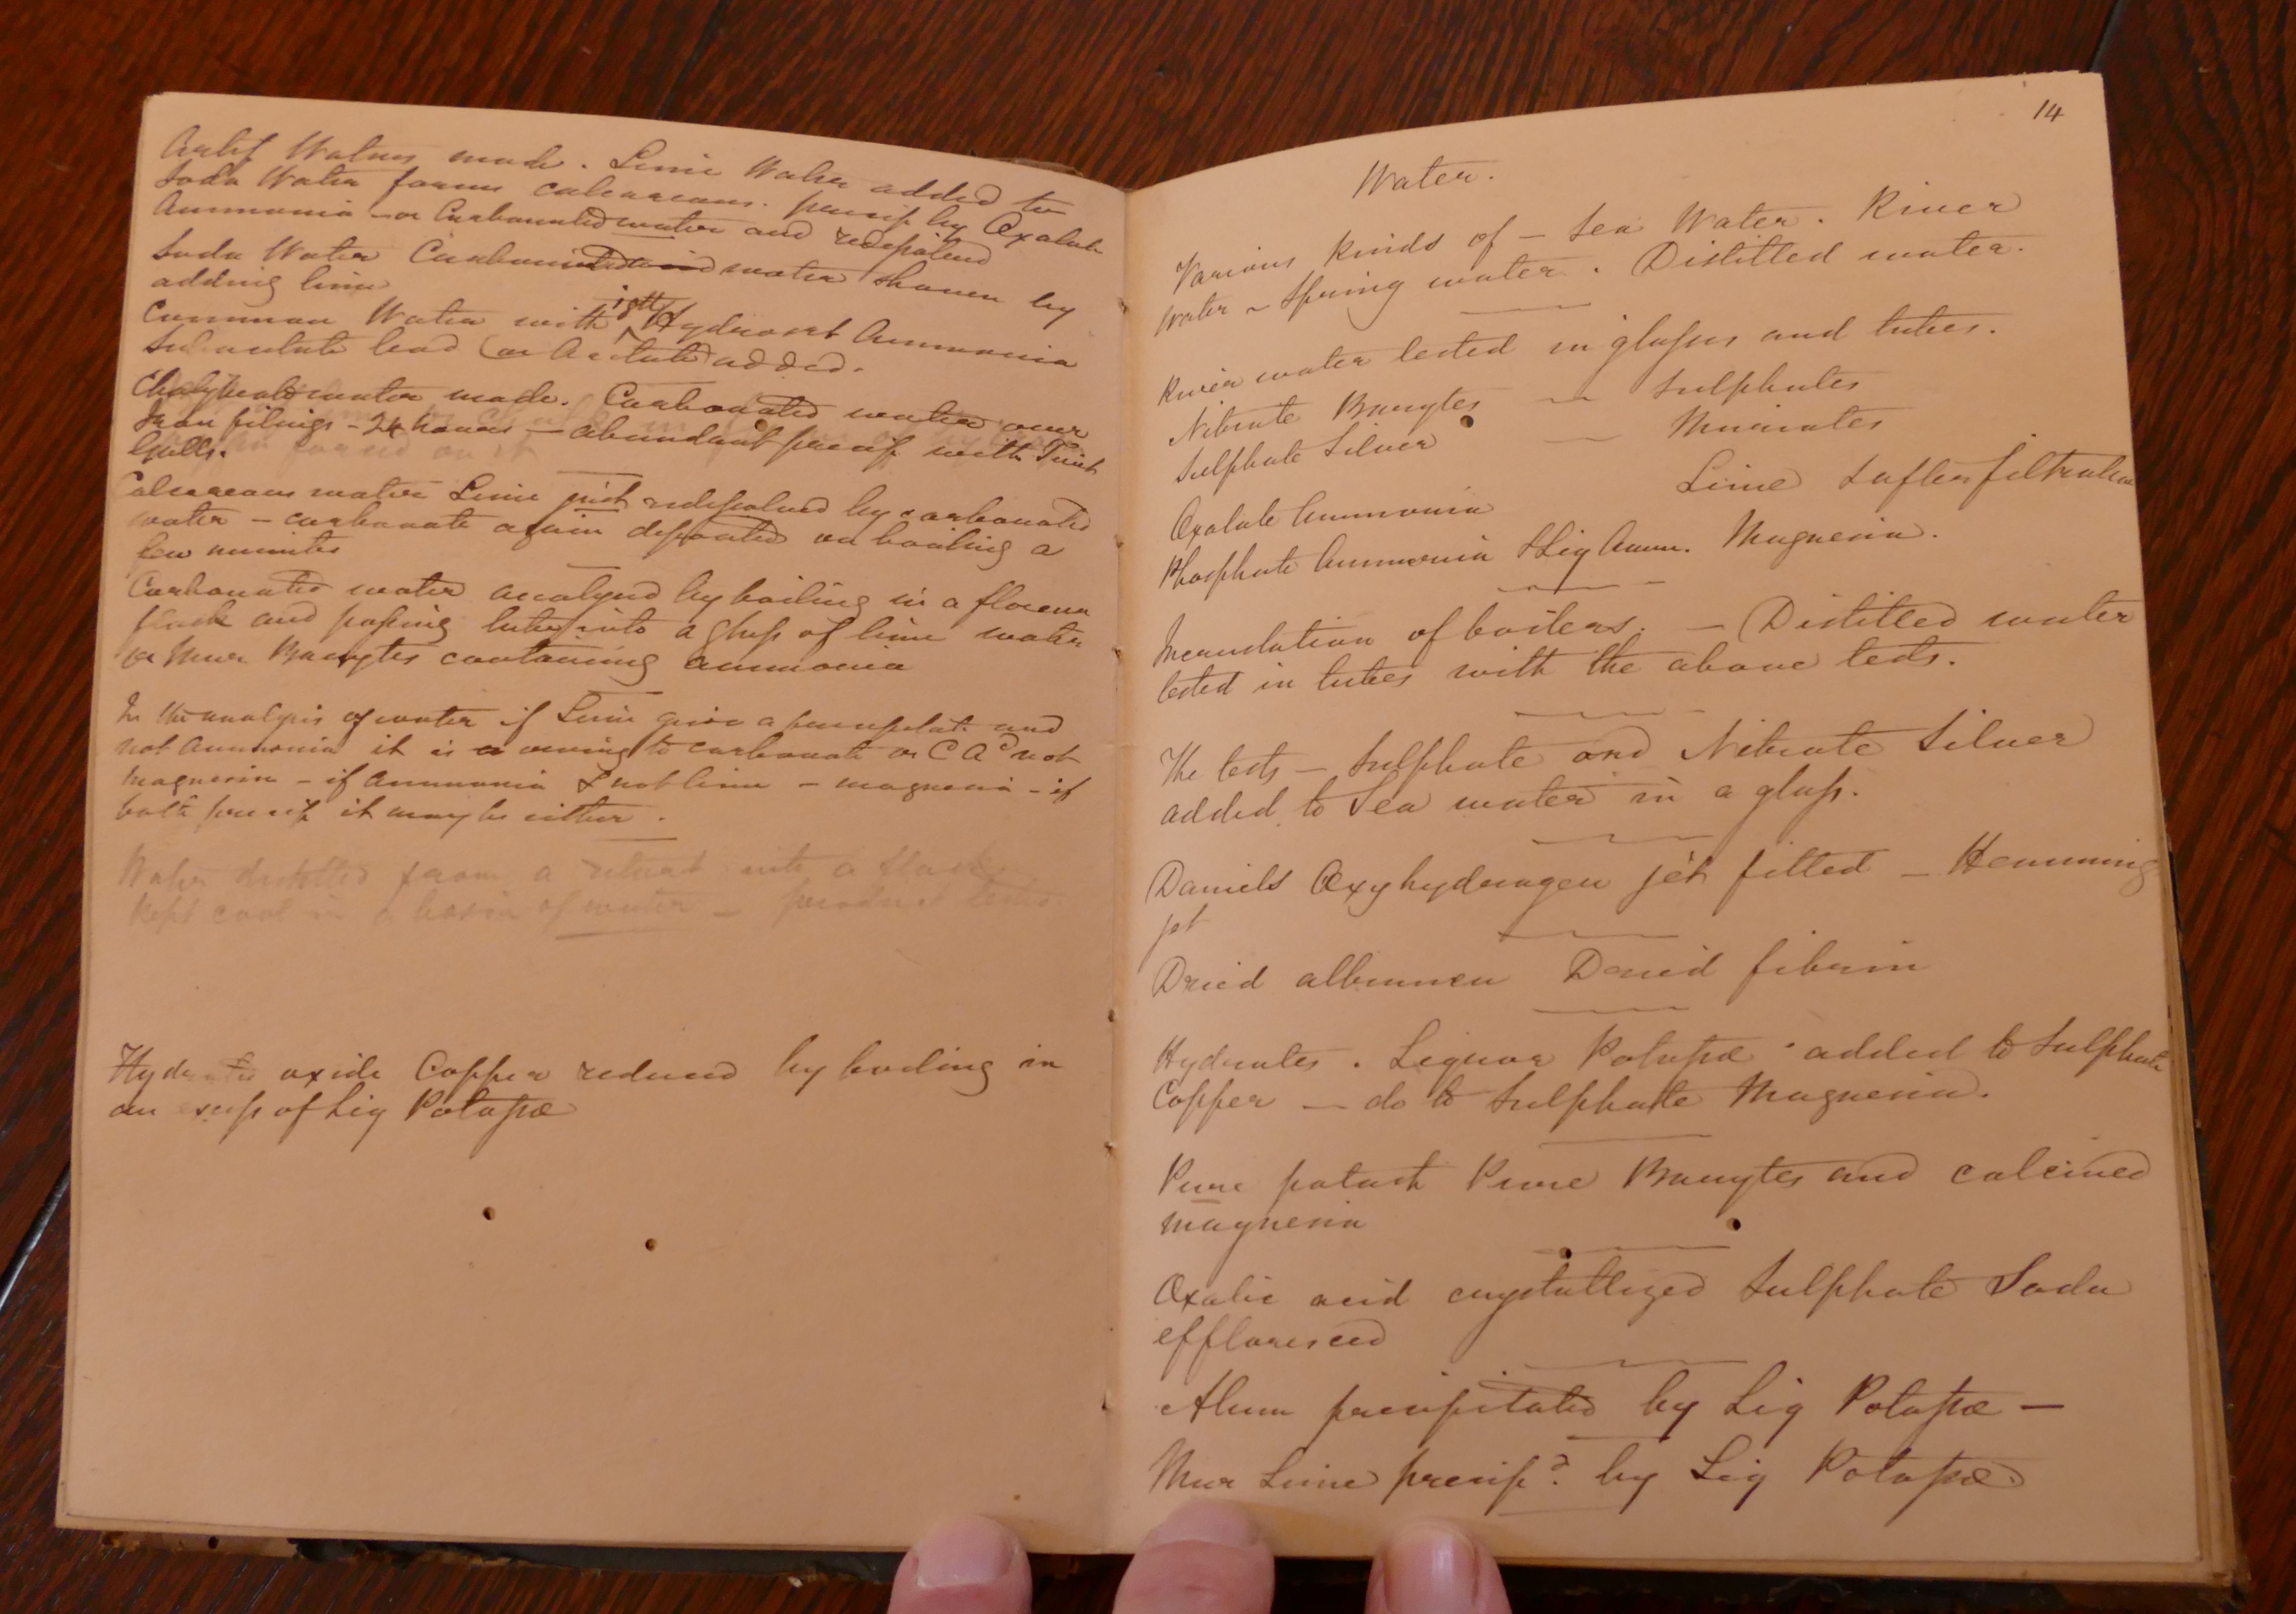 Artif Waters made. Lime Water added to
Soda Water forms calcareous. precip by Oxalate
Ammonia - or Carbonated water and redissolved
Soda Water Carbonated water shown by
adding lime
Common Water with Hydrosul Ammonia
Subacetate lead (or Acetate) added.
Chalybeate water made. Carbonated water over
Iron filings - 24 hours - abundant precip with Tinct
Galls.
Calcareous water Lime just redissolved by carbonated
water - carbonate again deposited on boiling a
few minutes
Carbonated water analysed by boiling in a florence
flask and passing tube into a glass of lime water
or Mur Barytes containing ammonia
In the analysis of water if Lime give a precipitate and
not Ammonia it is owing to carbonate or C Ac not
magnesia - if Ammonia & not lime - magnesia - if
both precip it may be either.
Water distilled from a retort into a flask
kept cool in a basin of water - product tested
Hydrated oxide Copper reduced by boiling in
an excess of Liq Potassæ
14
Water.
Various kinds of - Sea Water. River
Water - Spring water. Distilled water.
River water tested in glasses and tubes.
Nitrate Barytes - Sulphates
Sulphate Silver - Muriates
Oxalate Ammonia Lime & after filtration
Phosphate Ammonia & Liq Amm. Magnesia.
Incrustation of boilers. - Distilled water
tested in tubes with the above tests.
The tests - Sulphate and Nitrate Silver
added to Sea water in a glass.
Daniels Oxyhydrogen jet fitted - Hemming
jet
Dried albumen Dried fibrin
Hydrates. Liquor Potassæ added to Sulphate
Copper - do to Sulphate Magnesia.
Pure potash Pure Barytes and calcined
magnesia
Oxalic acid crystallized Sulphate Soda
effloresced
Alum precipitated by Liq Potassæ -
Mur Lime precipd. by Liq Potassæ